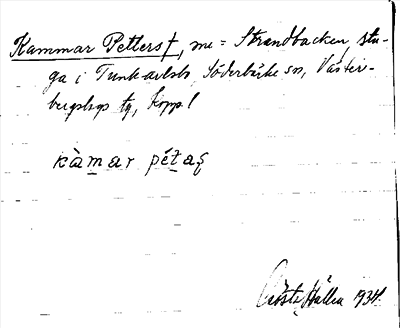 Kammar Petters †, me = Strandbacken, stu-
ga i Tunkarlsbo, Söderbärke sn, Väster-
bergslags tg, Kopp l
kàmar pétaʂ
Gösta Hallén 1934.